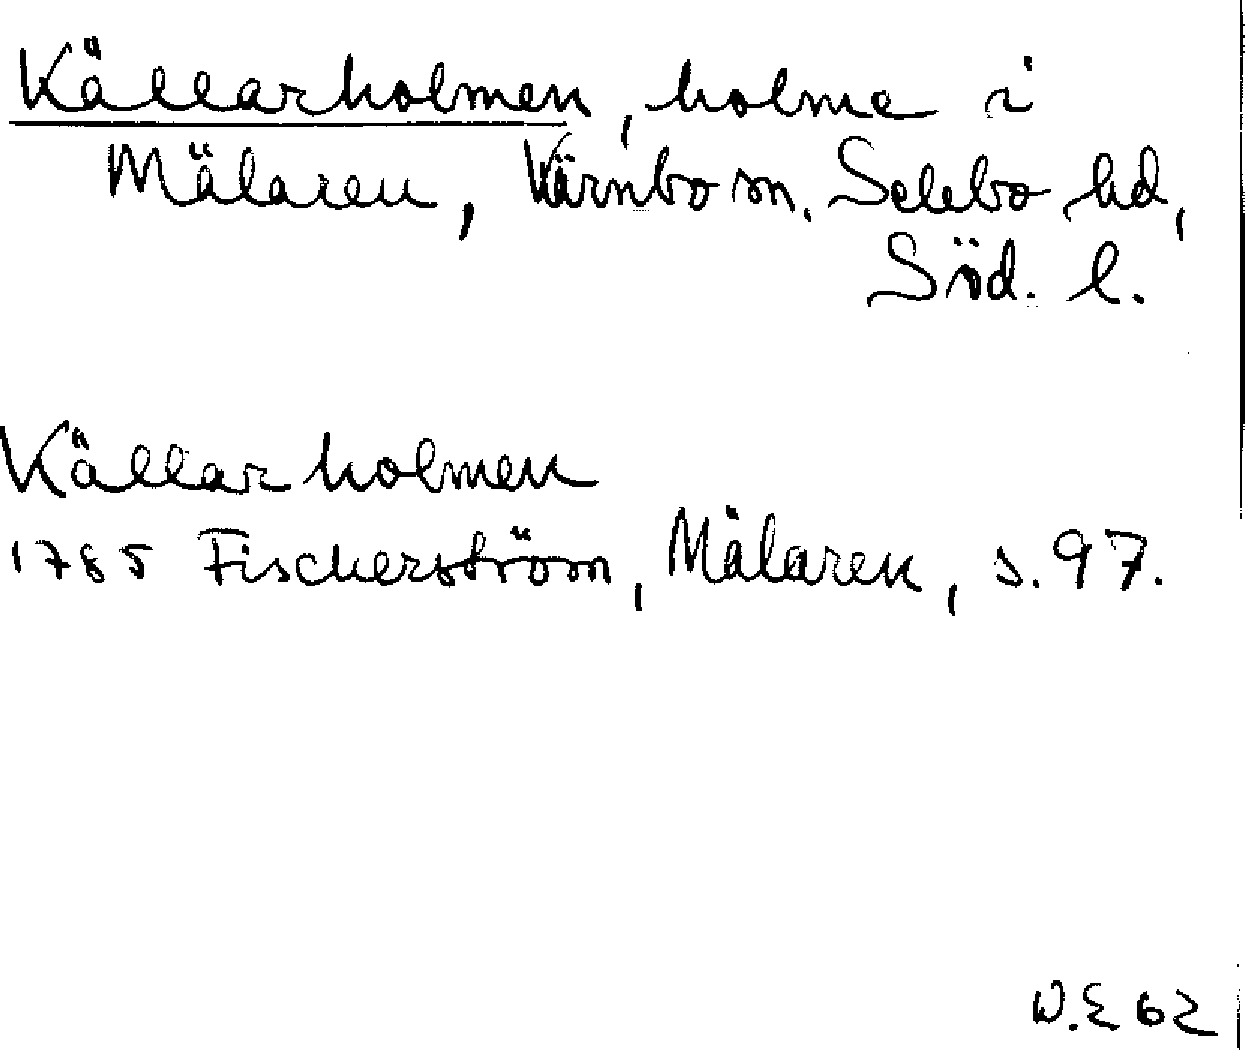 Källarholmen, holme i
Mälaren, Kärnbo sn. Selebo hd,
Söd. l.
Källarholmen
1785 Fischerström, Mälaren, s. 97.
W.E 62